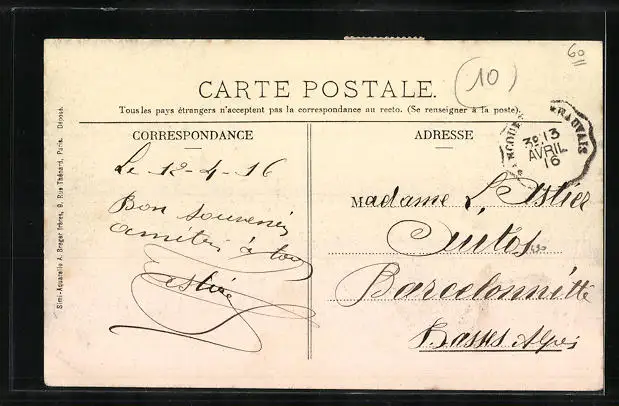 CARTE POSTALE.
Tous les pays étrangers n'acceptent pas la correspondance au recto. (Se renseigner à la poste).
CORRESPONDANCE
Le 12-4-16
Bon souvenir
amitiés à tous
ADRESSE
Madame L. Astier
Autos
Barcelonnette
Basses Alpes
(10)
60
BEAUVAIS
3E 13
AVRIL
16
Simi-Aquarelle A. Breger frères, 9, Rue Thénard, Paris. Déposé.